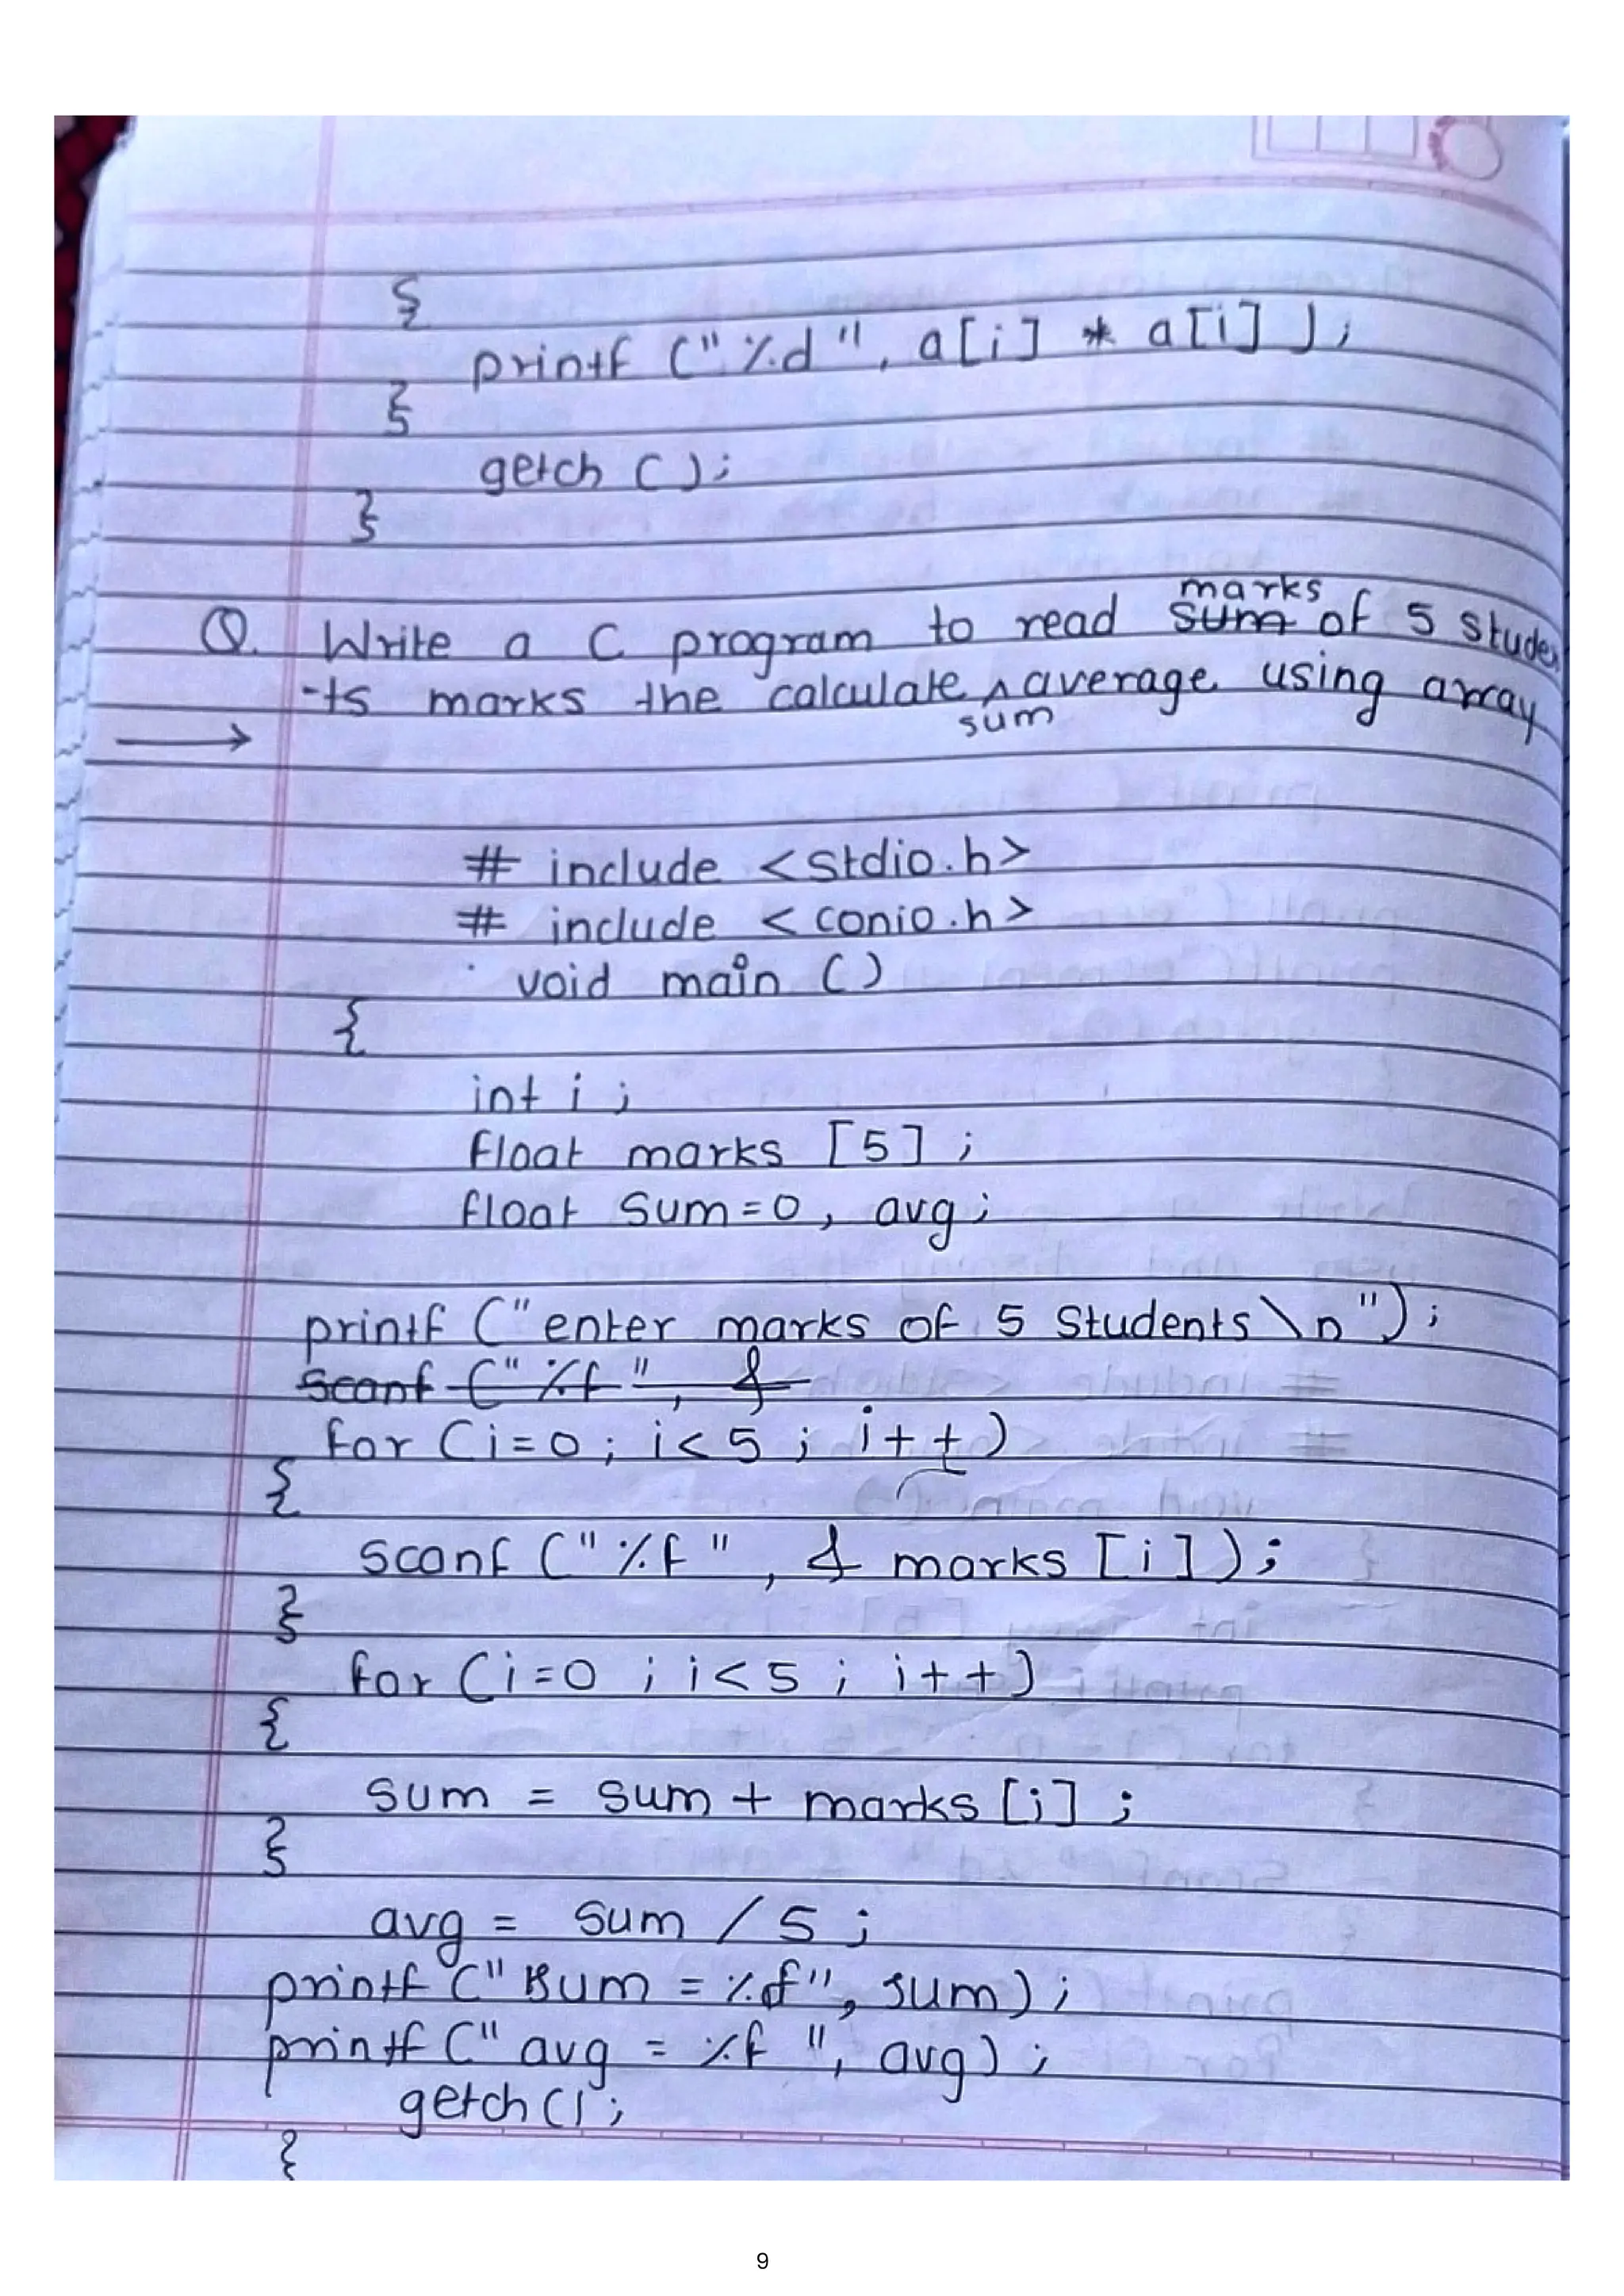 {
printf ("%d", a[i] * a[i]);
}
getch ();
}
marks
Q. Write a C program to read sum of 5 Studen
-ts marks the calculate ^ average using array
sum
→
# include <stdio.h>
# include <conio.h>
void main ()
{
int i ;
float marks [5] ;
float sum=0, avg;
printf ("enter marks of 5 Students \n");
scanf ("%f", &
for (i=0; i<5 ; i++)
{
scanf ("%f", & marks [i]);
}
for (i=0 ; i<5 ; i++)
{
sum = sum + marks [i] ;
}
avg = sum / 5 ;
printf ("sum = %f", sum) ;
printf (" avg = %f ", avg) ;
getch();
}
9